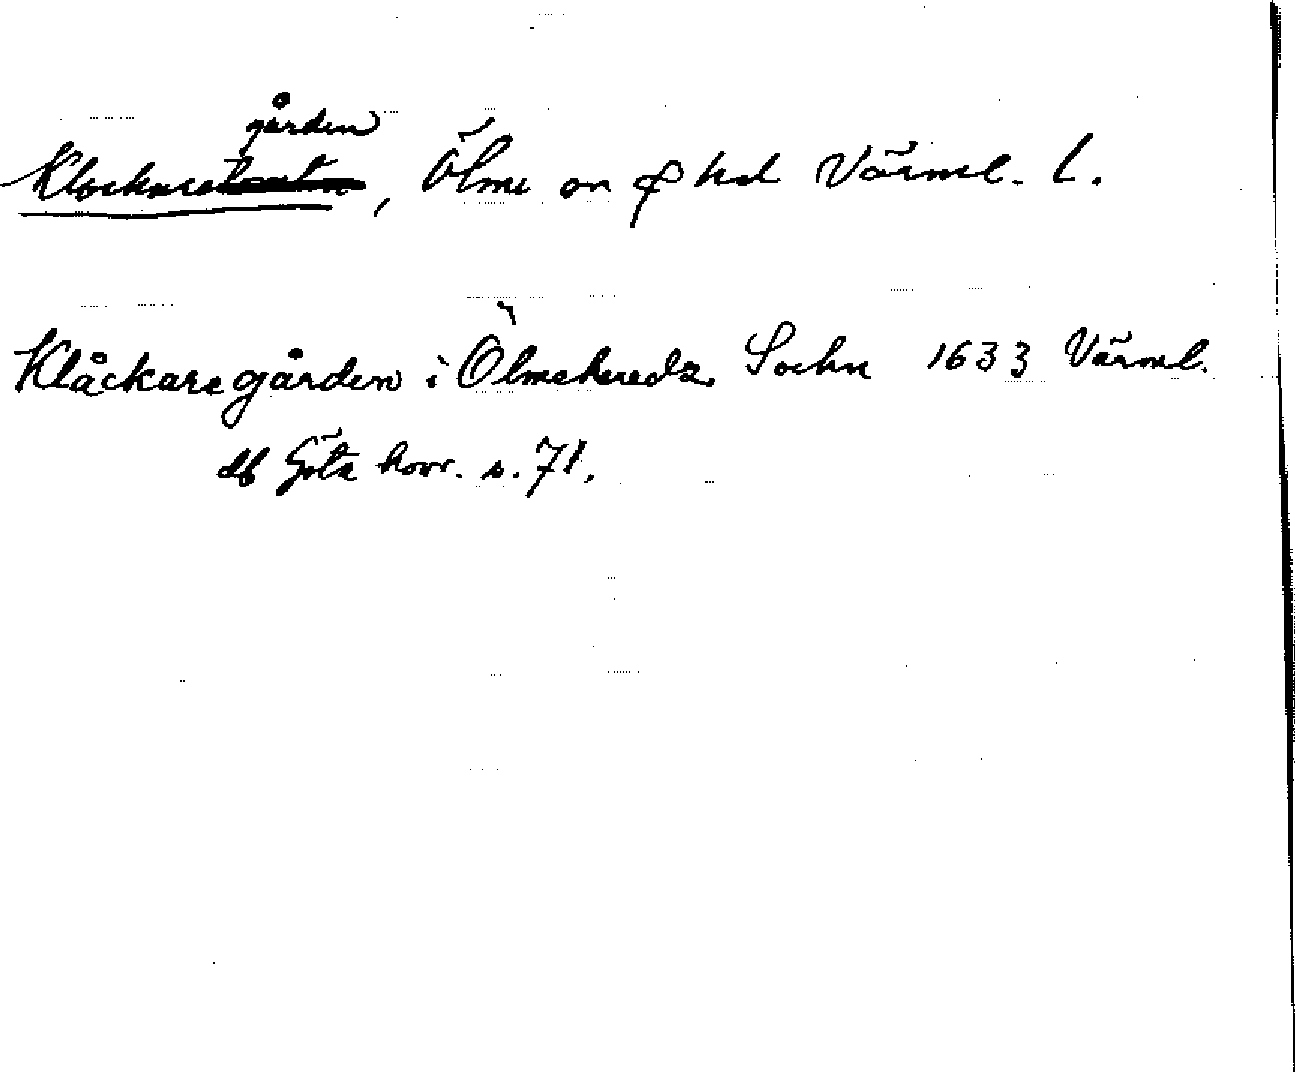 gården
Klockare, Ölme sn o hd Värml. l.
Klåckaregården i Ölmeheredz Sochn 1633 Värml.
df Göta hovr. s. 71.